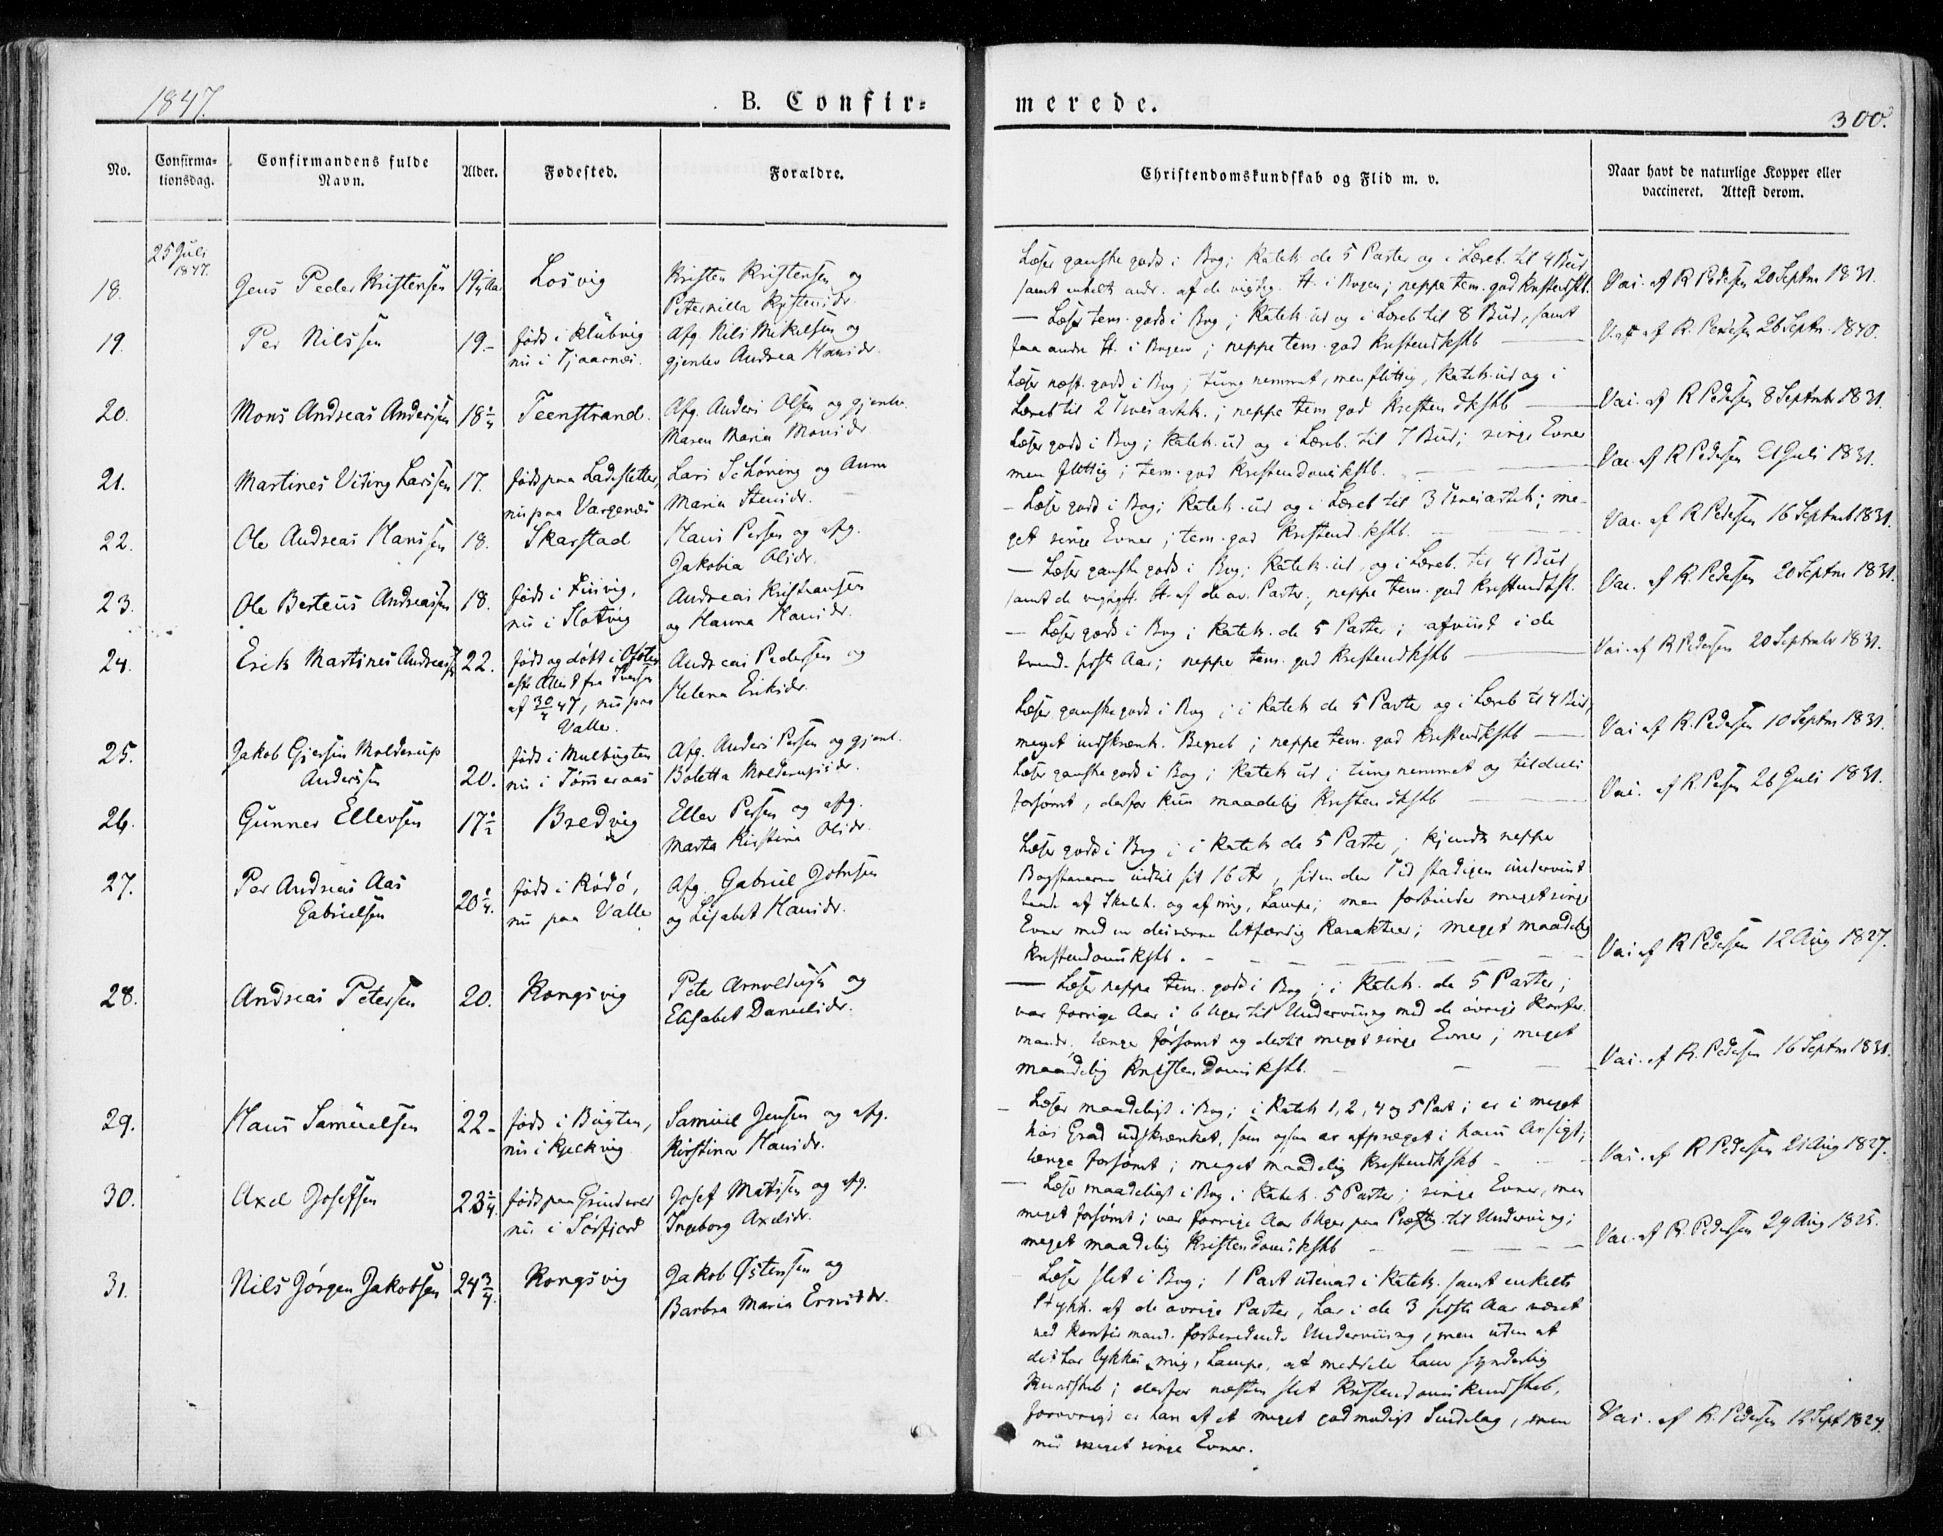 1847.
B. Confir=
merede.
300.
No.
Confirma-
tionsdag.
Confirmandens fulde
Navn.
Alder.
Fødested.
Forældre.
Christendomskundskab og Flid m. v.
Naar havt de naturlige Kopper eller
vaccineret. Attest derom.
25 Juli
1847.
18.
Jens Peder Kristensen
19
Losvig
Kristen Kristensen og
Peternilla
Læser ganske godt i Bog; Katek. de 5 Parter og i Læreb. til 4 Bud,
samt enkelt andr. af de vigtig. St. i Bogen; neppe tem. god
Vac. af R Pedersen 20 Septm 1831.
19.
Per Nilssen
19-
født i Klubvig
nu i Tjaarnæs.
Afg. Nils Mikelsen og
gjenlev Andrea Hansdr.
– Læser tem. godt i Bog; Katek. ud og i Læreb til 8 Bud, samt
faa andre St. i Bogen; neppe tem. god
Vac af R. Pedersen 26 Septm. 1840.
20.
Mons Andreas Anderssen
18¼
Teenstrand.
Afg. Anders Olsen og gjenlv.
Maren Maria Monsdr.
Læser næst. godt i Bog; tung nemmet, men flittig, Katek. ud og i
Læreb til 2 ; neppe tem god
Vac. af R Pedersen 8 Septmbr 1831.
21.
Martines Viting Larssen
17.
født paa Ladsletten,
nu paa Vargenæs
Lars Schøning og Anne
Maria Stensdr.
Læser godt i Bog; Katek. ud og i Læreb. til 7 Bud; ringe Evner
men flittig; tem. god Kristendomskskb.
Vac. af R Pedersen 21 Juli 1831.
22.
Ole Andreas Hanssen
18.
Skarstad
Hans Persen og afg.
Jakobia Olsdr.
– Læser godt i Bog; Katek. ud og i Læreb til 3 ; me-
get ringe Evner; tem. god
Vac. af R Pedersen 16 Septmb 1831.
23.
Ole Berteus Andreassen
18.
født i Finvig,
nu i Slotvig
Andreas Kristiansen
og Hanna Hansdr.
– Læser ganske godt i Bog; Katek. ud, og i Læreb. til 4 Bud,
samt de St. af de øv. Parter, neppe tem. god
Vac. af R. Pedersen 20 Septm 1831.
24.
Erik Martines
22.
født og døbt i
fra
af 30/4 47, nu paa
Valle.
Andreas Pedersen og
Helena Eriksdr.
– Læser godt i Bog; Katek. de 5 Parter; afviist i de
Aar; neppe tem. god
Vac. af R Pedersen 20 Septmbr 1831.
25.
Jakob Moldrup
Anderssen
20.
født i Mulbugten
nu i Tømmeraas
Afg. Anders Persen og gjenl.
Boletta
Læser ganske godt i Bog; i Katek de 5 Parter og i Læreb til 4 Bud,
meget indskrænk. Begreb; neppe tem. god
Vac af R. Pedersen 10 Septm 1831.
26.
Gunner Ellevsen
17½
Bredvig
Ellev Persen og afg.
Marta Kirstina Olsdr.
Læser ganske godt i Bog; Katek ud; tung nemmet og tildels
forsømt, derfor kun maadelig
Vac. af R Persen 26 Juli 1831.
27.
Per Andreas Aas
Gabrielsen
20¼.
født i Rødø,
nu paa Valle
Afg. Gabriel Johnsen
og Lisabet Hansdr.
Læser godt i Bog; i Katek de 5 Parter; kjendte neppe
Bogstaverne indtil sit 16 Aar, siden den Tid stadigen undervist
af og af mig, Lampe; men forbinder meget ringe
Evner med en desværre letfærdig Karakteer; meget maadelig
Kristendomskskb.
Vac af R Pedersen 12 Aug 1827.
28.
Andreas Petersen
20.
Kongsvig
Peter Arnoldusen og
Elisabet Danielsdr.
– Læser neppe tem. godt i Bog; i Katek. de 5 Parter;
var forrige Aar i 6 Uger til Underviisning med de øvrige Konfir-
mandr. længe forsømt og dertil meget ringe Evner; meget
maadelig Kristendomskskb.
Vac. af R. Pedersen 16 Septm 1831.
29.
Hans Samuelsen
22-
født i Bugten,
nu i Kjeekvig
Samuel Jensen og afg.
Kirstina Hansdr.
– Læser maadeligt i Bog; i Katek 1, 2, 4 og 5 Part; er i meget
høi Grad indskrænket, som ogsaa er afpræget i hans Ansigt;
længe forsømt; meget maadelig
Vac. af R Pedersen 21 Aug 1827.
30.
Axel Josefsen
23¼
født paa
nu i Sørfjord
Josef Matisen og afg.
Ingeborg Axelsdr.
– Læser maadeligt i Bog; i Katek. 5 Parter; ringe Evner, men
meget forsømt; var forrige Aar 6 Uger paa til Underviisning;
meget maadelig Kristendomskskb
Vac. af R. Pedersen 29 Aug 1825.
31.
Nils Jørgen Jakobsen
24¾.
Kongsvig
Jakob Østensen og
Barbra Maria
Læser slet i Bog; 1 Part udenad i Katek. samt enkelte
Stykk. af de øvrige Parter, har i de 3 sidste Aar været
ved Konfirmand. forberedende Underviisning, men uden at
det har lykkes mig, Lampe, at meddele ham synderlig
Kundskab; derfor næsten slet Kristendomskundskab,
forøvrigt er han af et meget godmodigt Sindelag, men
med meget ringe Evner.
Vac. af R. Pedersen 12 Sept 1824.